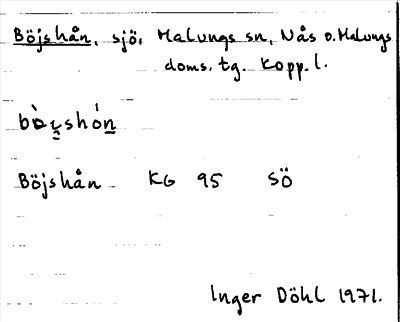 Böjshån, sjö, Malungs sn, Nås o. Malungs
doms. tg. Kopp. l.
Böjshån KG 95 SÖ
Inger Döhl 1971.